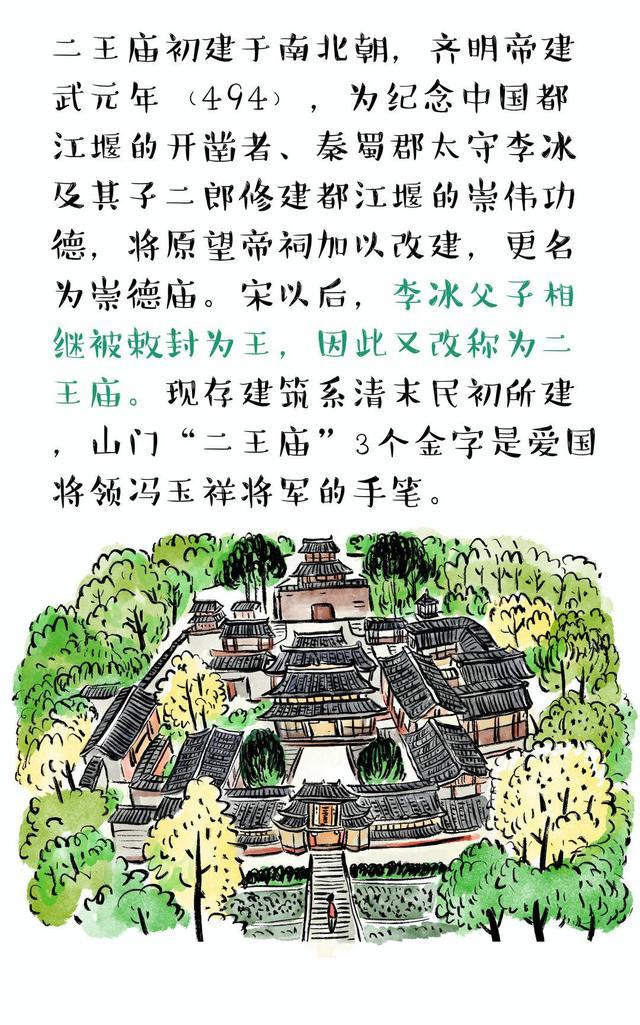 二王庙初建于南北朝，齐明帝建
武元年（494），为纪念中国都
江堰的开凿者、秦蜀郡太守李冰
及其子二郎修建都江堰的崇伟功
德，将原望帝祠加以改建，更名
为崇德庙。宋以后，李冰父子相
继被敕封为王，因此又改称为二
王庙。现存建筑系清末民初所建
，山门“二王庙”3个金字是爱国
将领冯玉祥将军的手笔。